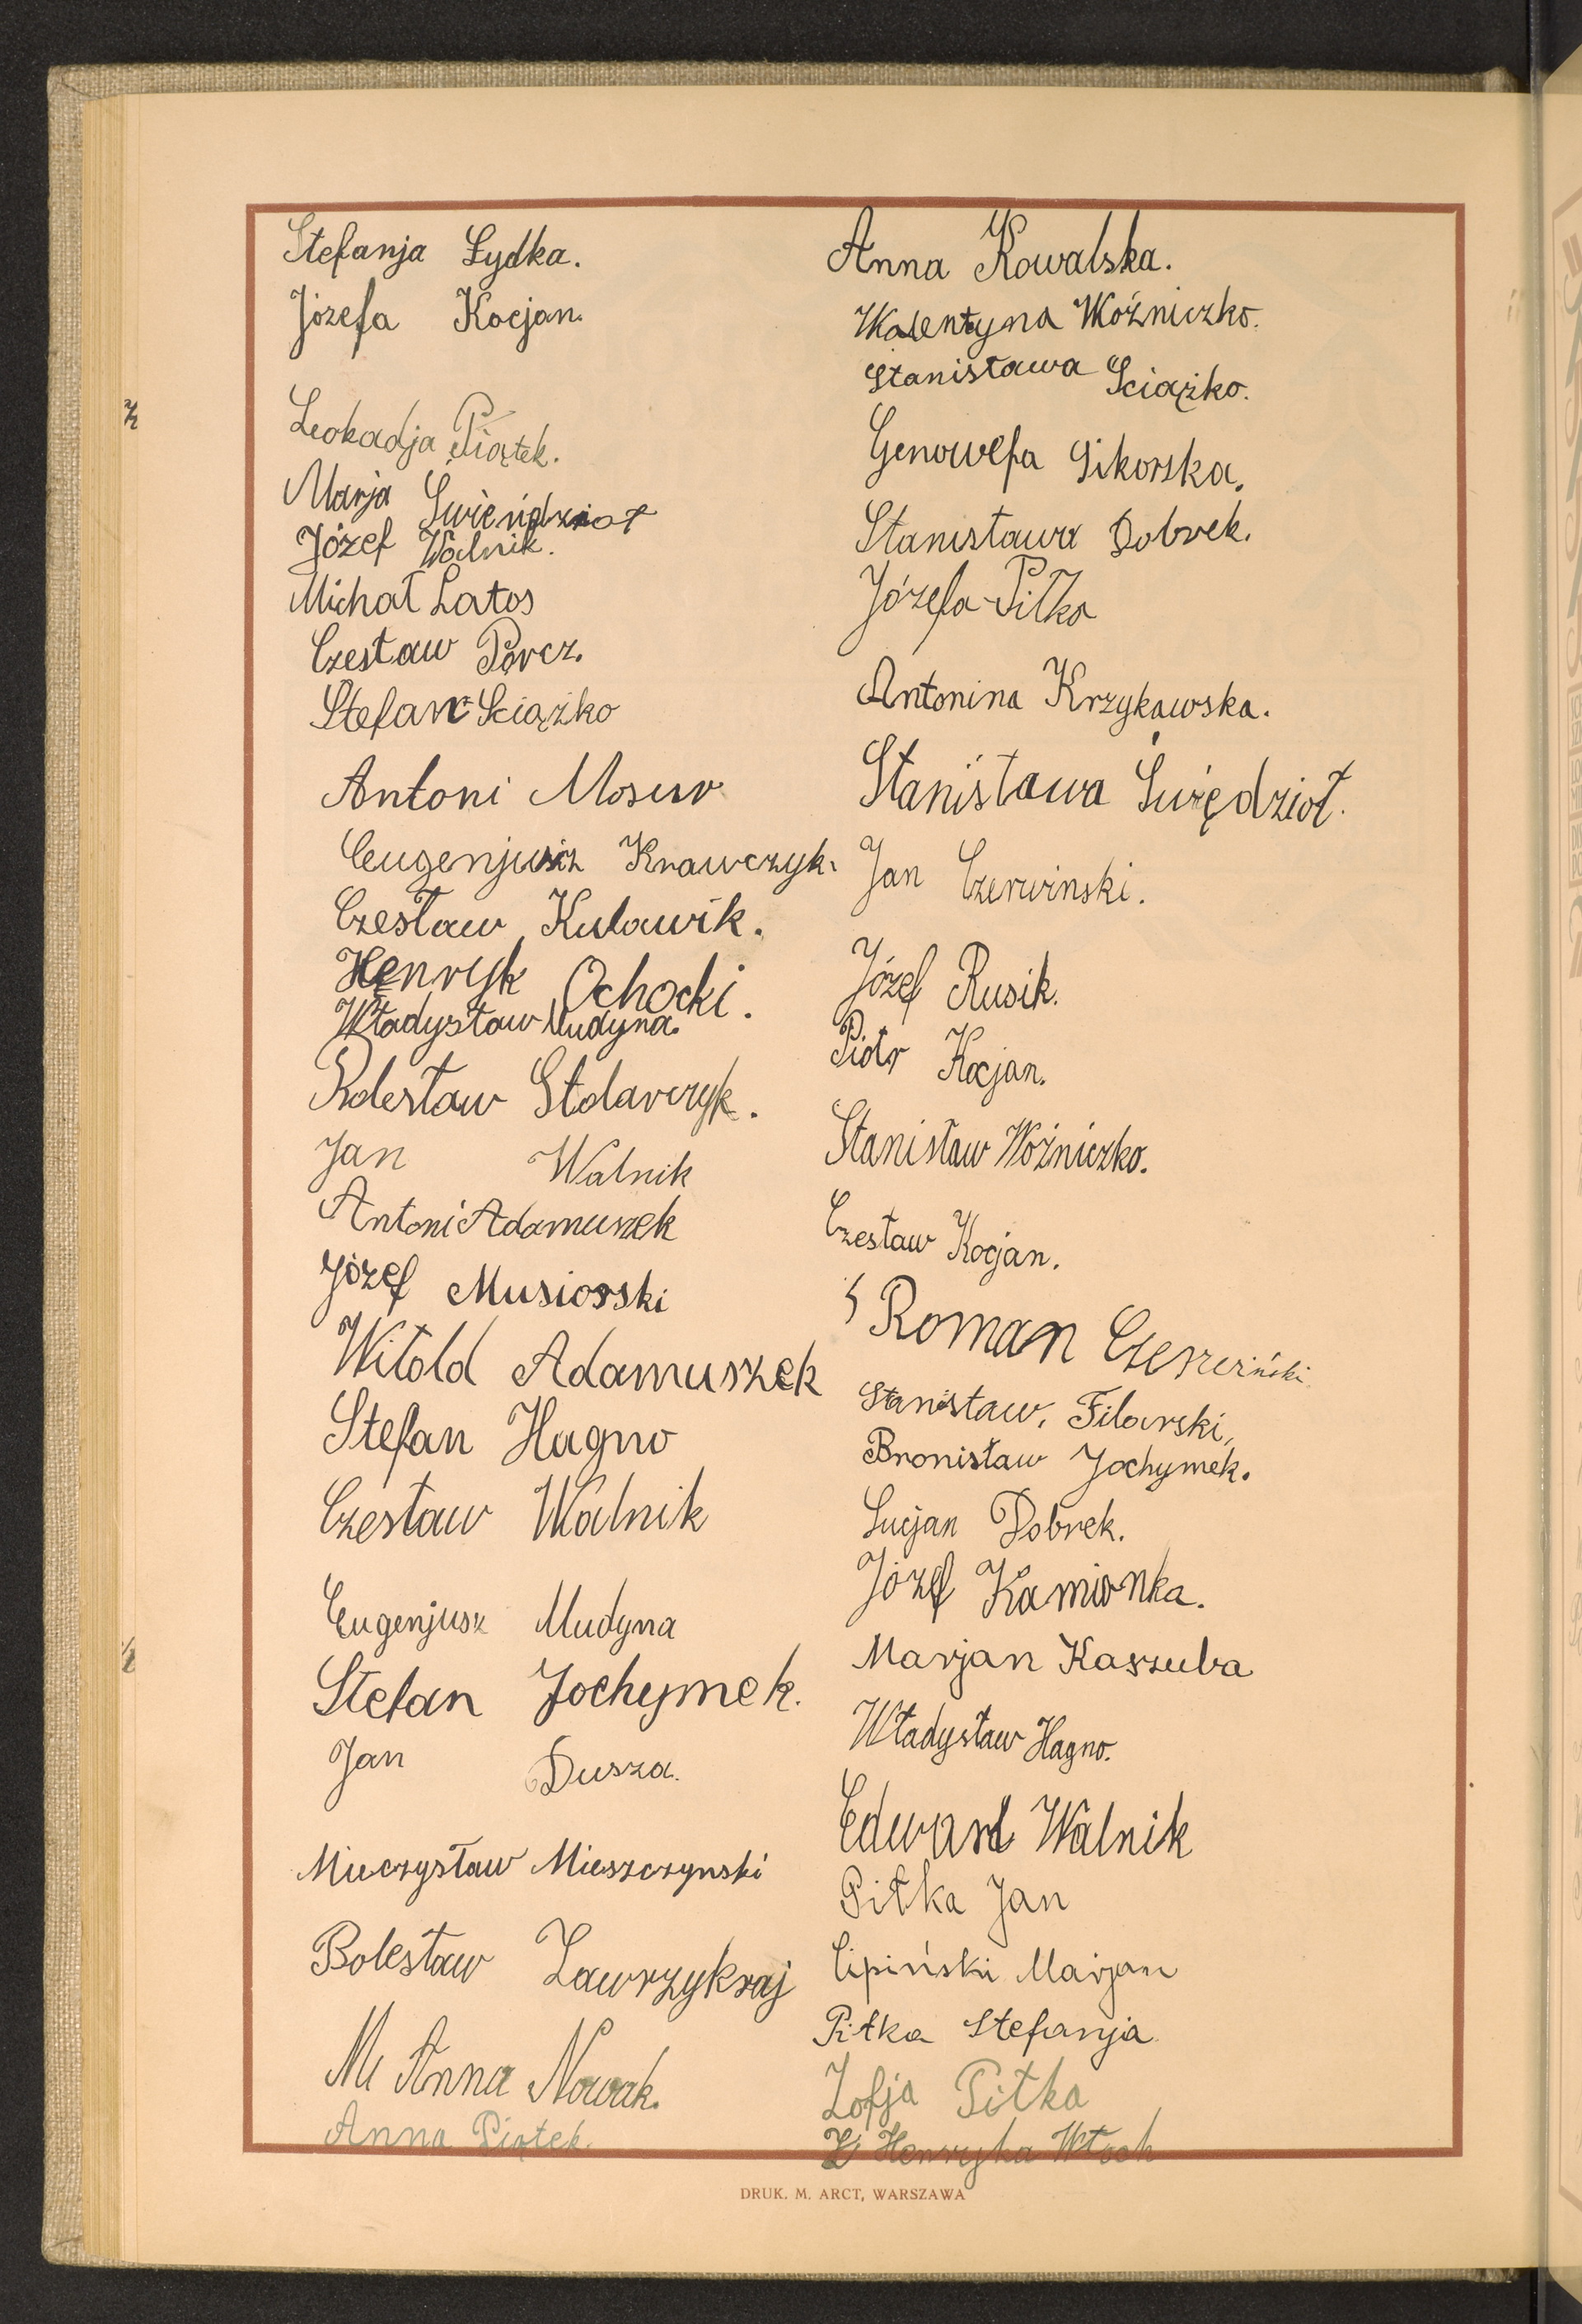 Stefanja Łydka.
Józefa Kocjan.
Leokadja Piątek.
Marja Świeńdzioł
Józef Walnik.
Michał Latos
Czesław Porcz.
Stefan Sciążko
Antoni Mosur
Eugenjusz Krawczyk.
Czesław Kulawik.
Henryk Ochocki.
Władysław Mudyna.
Bolesław Stolarczyk.
Jan Walnik
Antoni Adamuszek
Józef Musiorski
Witold Adamuszek
Stefan Hagno
Czesław Walnik
Eugenjusz Mudyna
Stefan Jochymek.
Jan Dusza.
Mieczysław Mieszczynski
Bolesław Zawrzykraj
M Anna Nowak.
Anna Piątek.
Anna Kowalska.
Walentyna Woźniczko.
Stanisława Sciążko.
Genowefa Sikorska.
Stanisława Dobrek.
Józefa Pitka
Antonina Krzykawska.
Stanisława Świędzioł.
Jan Czerwinski.
Józef Rusik.
Piotr Kocjan.
Stanisław Woźniczko.
Czesław Kocjan.
Roman
Stanisław, Filarski,
Bronisław Jochymek.
Lucjan Dobrek.
Józef Kamionka.
Marjan Kaszuba
Władysław Hagno.
Edward Walnik
Pitka Jan
Lipiński Marjan
Pitka Stefanja
Zofja Pitka
Henryka Włoch
DRUK. M. ARCT, WARSZAWA